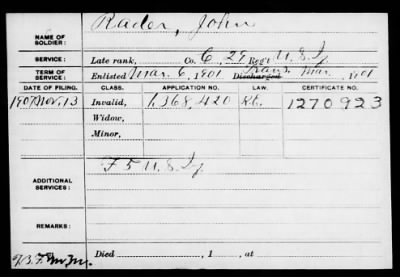 NAME OF SOLDIER: Rader, John
SERVICE: Late rank, Co. C, 29 Reg't U.S. Inf.
TERM OF SERVICE: Enlisted Mar. 6, 1901 Discharged Trans. Mar. , 1901
DATE OF FILING. CLASS. APPLICATION NO. LAW. CERTIFICATE NO.
1907 Nov. 13 Invalid, 1,368,420 Rt. 1270923
Widow,
Minor,
ADDITIONAL SERVICES: F 5 U.S. Inf.
REMARKS:
Died , 1 , at